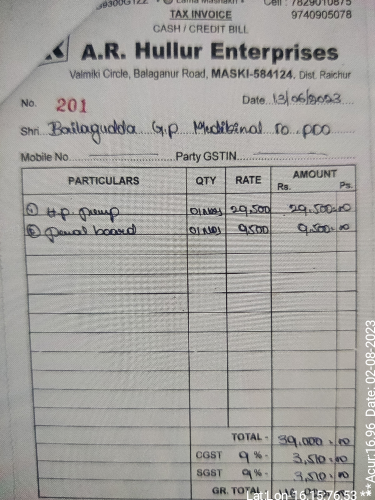 TAX INVOICE
Cell : 7829010875
CASH / CREDIT BILL
9740905078
A.R. Hullur Enterprises
Valmiki Circle, Balaganur Road, MASKI-584124. Dist. Raichur
No. 201
Date 13/06/2023
Shri Bailagudda G.p
Mobile No. Party GSTIN
PARTICULARS QTY RATE AMOUNT
Rs. Ps.
① H.p. pump 01 Nos 29,500 29,500=00
② penal board 01 Nos 9500 9,500=00
TOTAL 39,000=00
CGST 9% 3,510=00
SGST 9% 3,510=00
GR. TOTAL
Lat Lon:16.15 76.53 *** Acur:16.96 Date: 02-08-2023